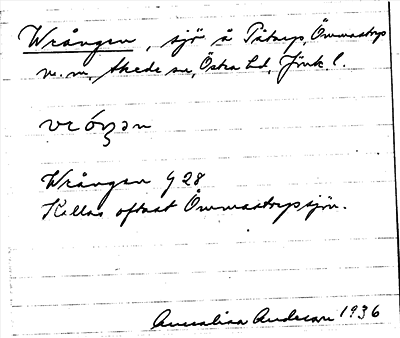 Wrången, sjö å Påtorp, Ömmastorp
m.m, Akede sn, Östra hd, Jönk l.
vróŋən
Wrången G 28
Kallas oftast Ömmastorpssjön.
Annalisa Anderson 1936